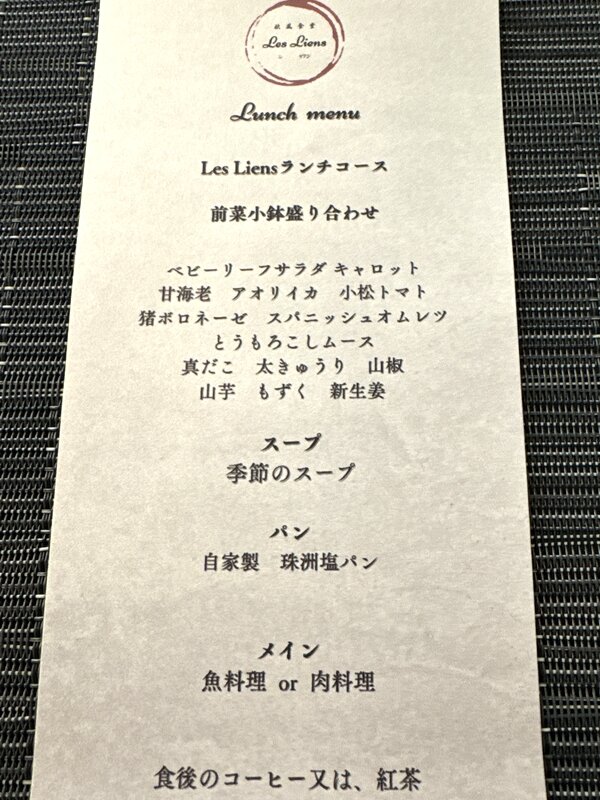 欧風食堂
Les Liens
レ リアン
Lunch menu
Les Liensランチコース
前菜小鉢盛り合わせ
ベビーリーフサラダ キャロット
甘海老　アオリイカ　小松トマト
猪ボロネーゼ　スパニッシュオムレツ
とうもろこしムース
真だこ　太きゅうり　山椒
山芋　もずく　新生姜
スープ
季節のスープ
パン
自家製　珠洲塩パン
メイン
魚料理 or 肉料理
食後のコーヒー又は、紅茶